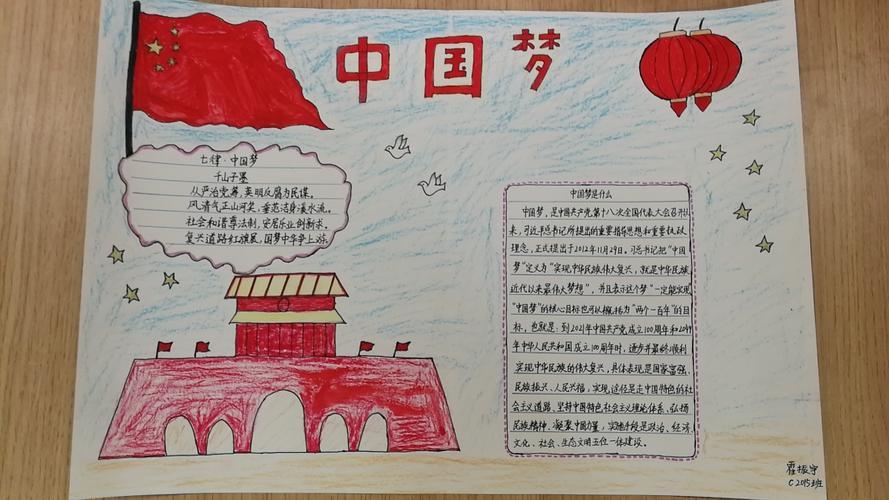 中国梦
七律·中国梦
千山子墨
从严治党筹,英明反腐为民谋。
风清气正山河笑,垂范洁身溪水流。
社会和谐尊法制,安居乐业创新求。
复兴道路红旗展,国梦中华争上游
中国梦是什么
中国梦,是中国共产党第十八次全国代表大会召开以
来,习近平总书记所提出的重要指导思想和重要执政
理念,正式提出于2012年11月29日。习总书记把“中国
梦”定义为“实现中华民族伟大复兴,就是中华民族
近代以来最伟大梦想”,并且表示这个梦“一定能实现
“中国梦”的核心目标也可以概括为“两个一百年”的目
标,也就是:到2021年中国共产党成立100周年和2049
年中华人民共和国成立100周年时,逐步并最终顺利
实现中华民族的伟大复兴,具体表现是国家富强、
民族振兴、人民幸福,实现途径是走中国特色的社
会主义道路、坚持中国特色社会主义理论体系、弘扬
民族精神、凝聚中国力量,实施手段是政治、经济、
文化、社会、生态文明五位一体建设。
霍振宇
C2015班